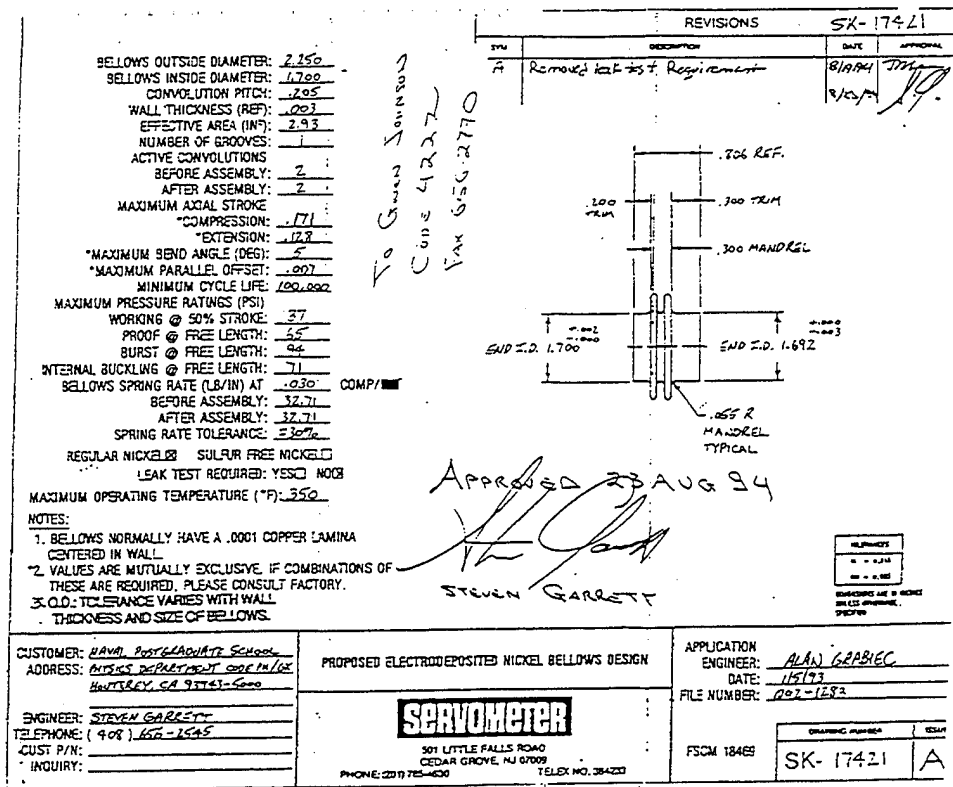 REVISIONS SK-17421
SYM DESCRIPTION DATE APPROVAL
A Removed leak test Requirement
BELLOWS OUTSIDE DIAMETER: 2.250
BELLOWS INSIDE DIAMETER: 1.700
CONVOLUTION PITCH: .205
WALL THICKNESS (REF): .003
EFFECTIVE AREA (IN²): 2.93
NUMBER OF GROOVES: 1
ACTIVE CONVOLUTIONS
BEFORE ASSEMBLY: 2
AFTER ASSEMBLY: 2
MAXIMUM AXIAL STROKE
*COMPRESSION: .171
*EXTENSION: .128
*MAXIMUM BEND ANGLE (DEG): 5
*MAXIMUM PARALLEL OFFSET: .007
MINIMUM CYCLE LIFE: 100,000
MAXIMUM PRESSURE RATINGS (PSI)
WORKING @ 50% STROKE: 37
PROOF @ FREE LENGTH: 65
BURST @ FREE LENGTH: 94
INTERNAL BUCKLING @ FREE LENGTH: 71
BELLOWS SPRING RATE (LB/IN) AT .030 COMP/
BEFORE ASSEMBLY: 32.71
AFTER ASSEMBLY: 32.71
SPRING RATE TOLERANCE: ±30%
REGULAR NICKEL☒ SULFUR FREE NICKEL☐
LEAK TEST REQUIRED: YES☐ NO☒
MAXIMUM OPERATING TEMPERATURE (°F): 350
NOTES:
1. BELLOWS NORMALLY HAVE A .0001 COPPER LAMINA
CENTERED IN WALL
*2. VALUES ARE MUTUALLY EXCLUSIVE. IF COMBINATIONS OF
THESE ARE REQUIRED, PLEASE CONSULT FACTORY.
3. O.D.: TOLERANCE VARIES WITH WALL
THICKNESS AND SIZE OF BELLOWS.
CODE 4222
FAX 656-2770
.806 REF.
.200 TRIM
.300 TRIM
.300 MANDREL
END I.D. 1.700 +.002 -.000
END I.D. 1.692 +.000 -.003
.055 R
MANDREL
TYPICAL
APPROVED 23 AUG 94
STEVEN GARRETT
TOLERANCES
DIMENSIONS ARE IN INCHES
UNLESS OTHERWISE
SPECIFIED
CUSTOMER: NAVAL POSTGRADUATE SCHOOL
ADDRESS: PHYSICS DEPARTMENT CODE PH/GX
MONTEREY, CA 93943-5000
ENGINEER: STEVEN GARRETT
TELEPHONE: (408) 656-2545
CUST P/N:
INQUIRY:
PROPOSED ELECTRODEPOSITED NICKEL BELLOWS DESIGN
SERVOMETER
501 LITTLE FALLS ROAD
CEDAR GROVE, NJ 07009
PHONE: (201) 785-4630 TELEX NO. 384233
APPLICATION
ENGINEER: ALAN GRABIEC
DATE: 1/5/93
FILE NUMBER: 002-1282
FSCM 18469
DRAWING NUMBER ISSUE
SK-17421 A